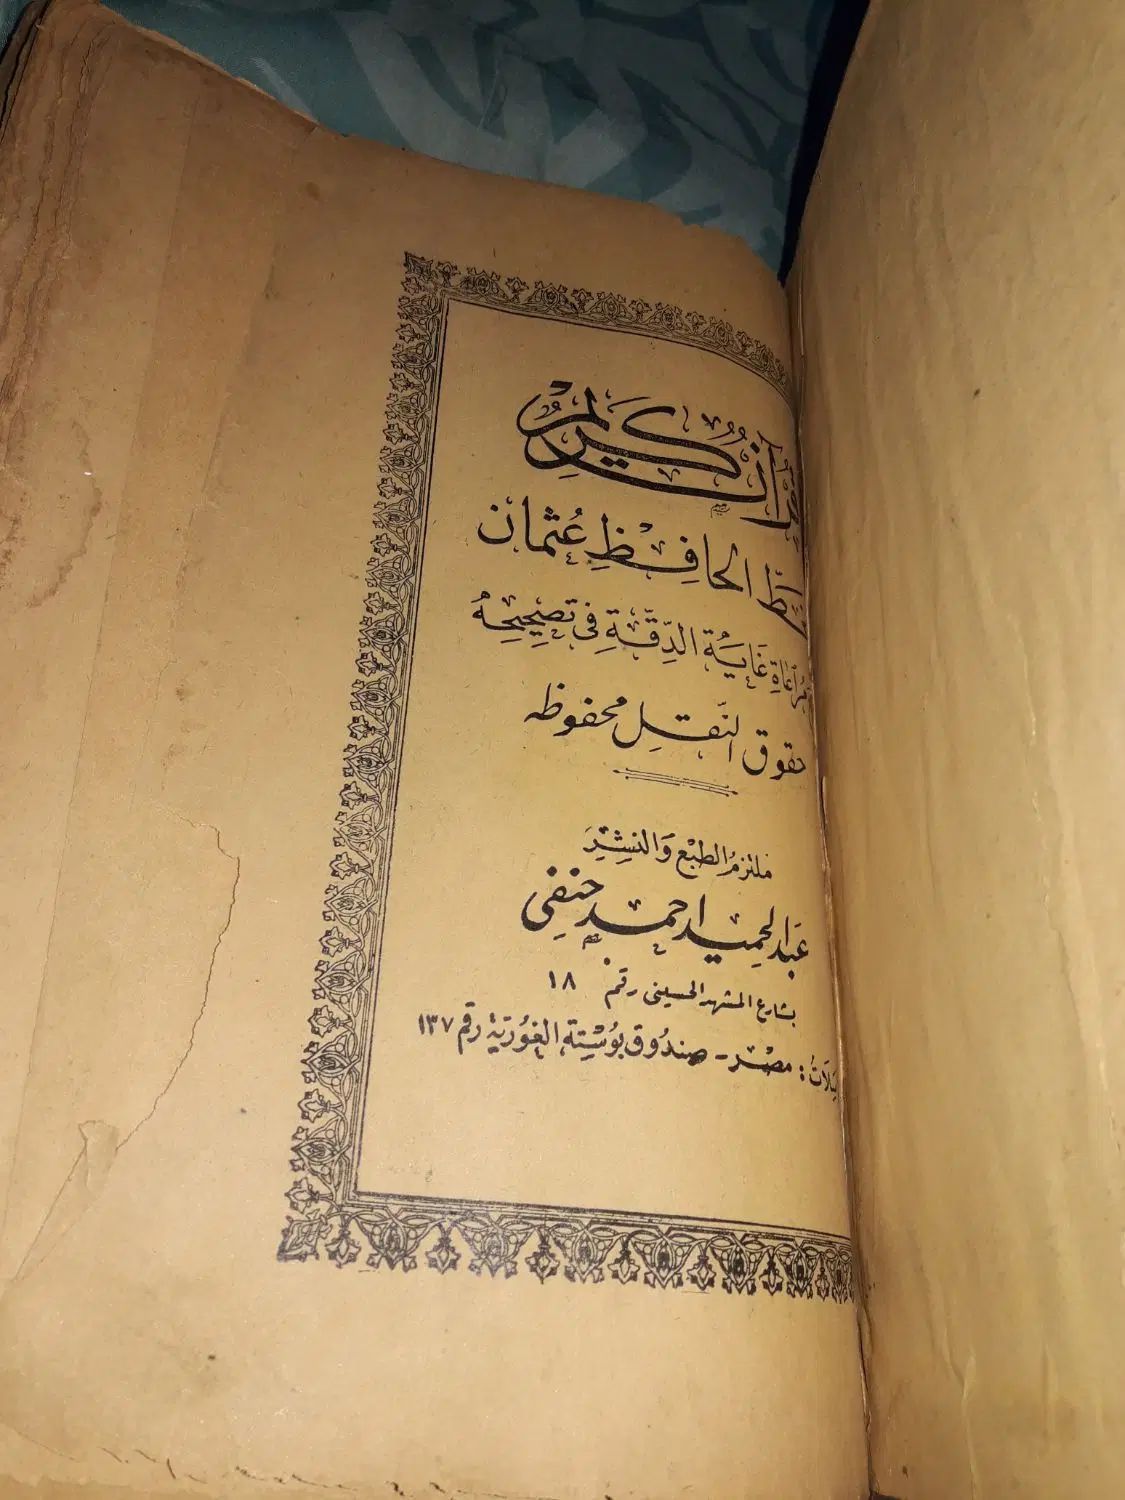 قرآن كريم
بخط الحافظ عثمان
مراعاة غاية الدقة في تصحيحه
حقوق النقل محفوظه
ملتزم الطبع والنشر
عبد الحميد احمد حنفي
بشارع المشهد الحسيني رقم ١٨
مصر - صندوق بوستة الغورية رقم ١٣٧